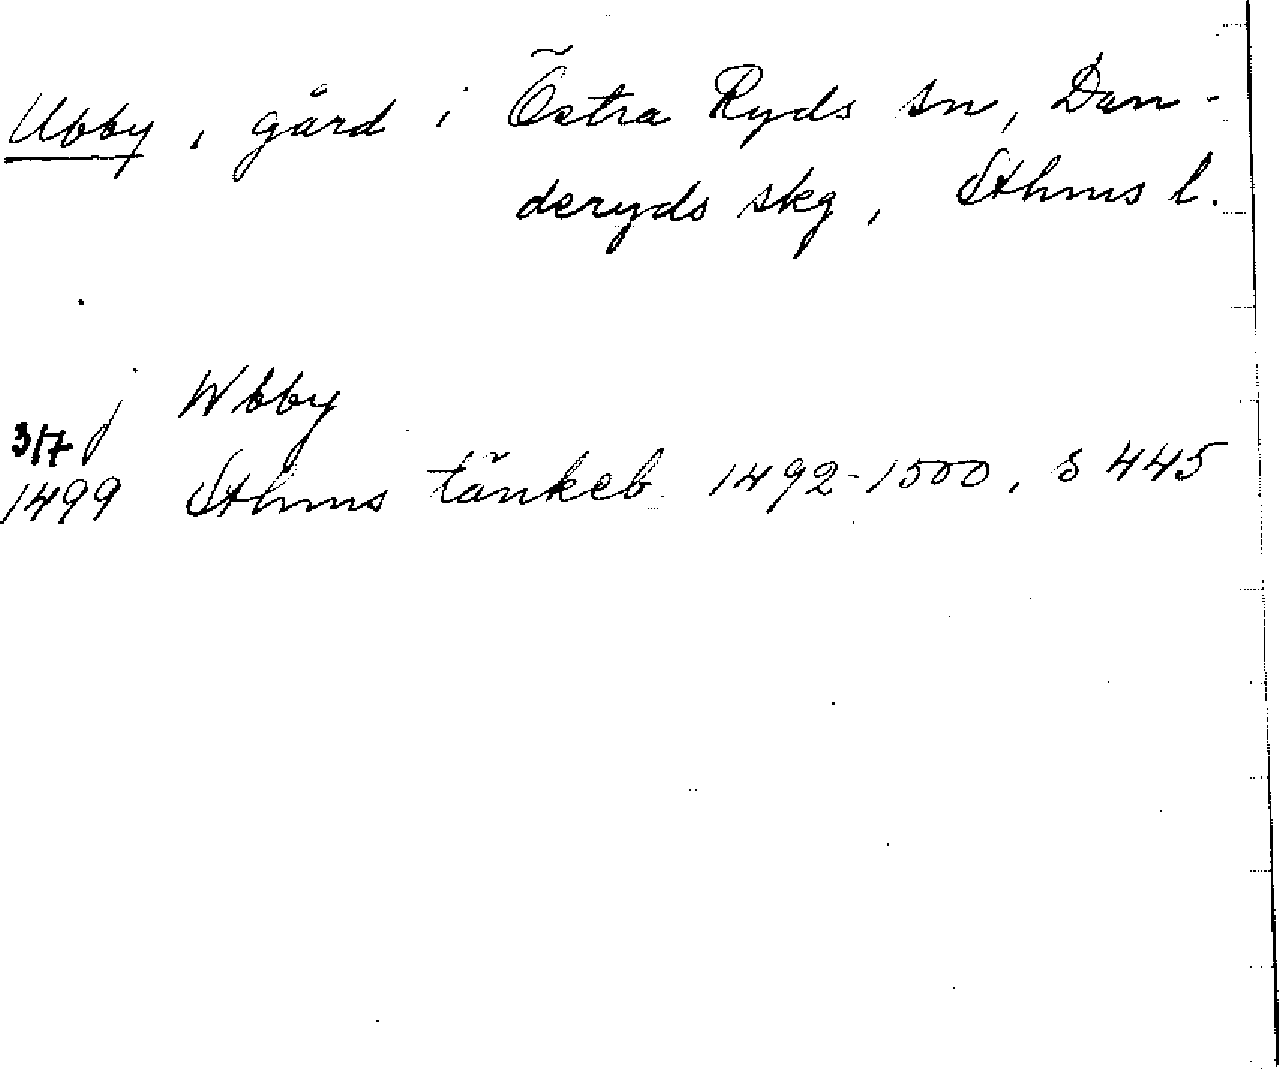 Ubby, gård i Östra Ryds sn, Dan-
deryds skg, Sthms l.
j Wbby
3/7
1499 Sthms tänkeb. 1492-1500, s 445